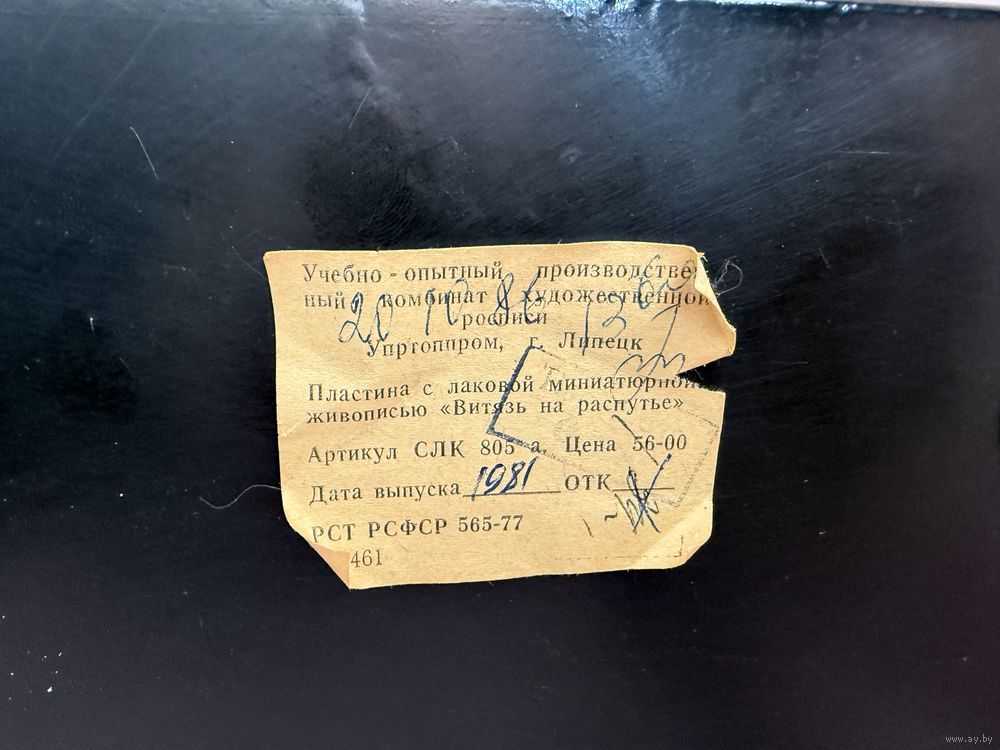 Учебно - опытный производстве
ный комбинат художественной
росписи
Упртоппром, г. Липецк
20 IV 86
Пластина с лаковой миниатюрной
живописью «Витязь на распутье»
Артикул СЛК 805 а. Цена 56-00
Дата выпуска 1981 ОТК
РСТ РСФСР 565-77
461
www.ay.by